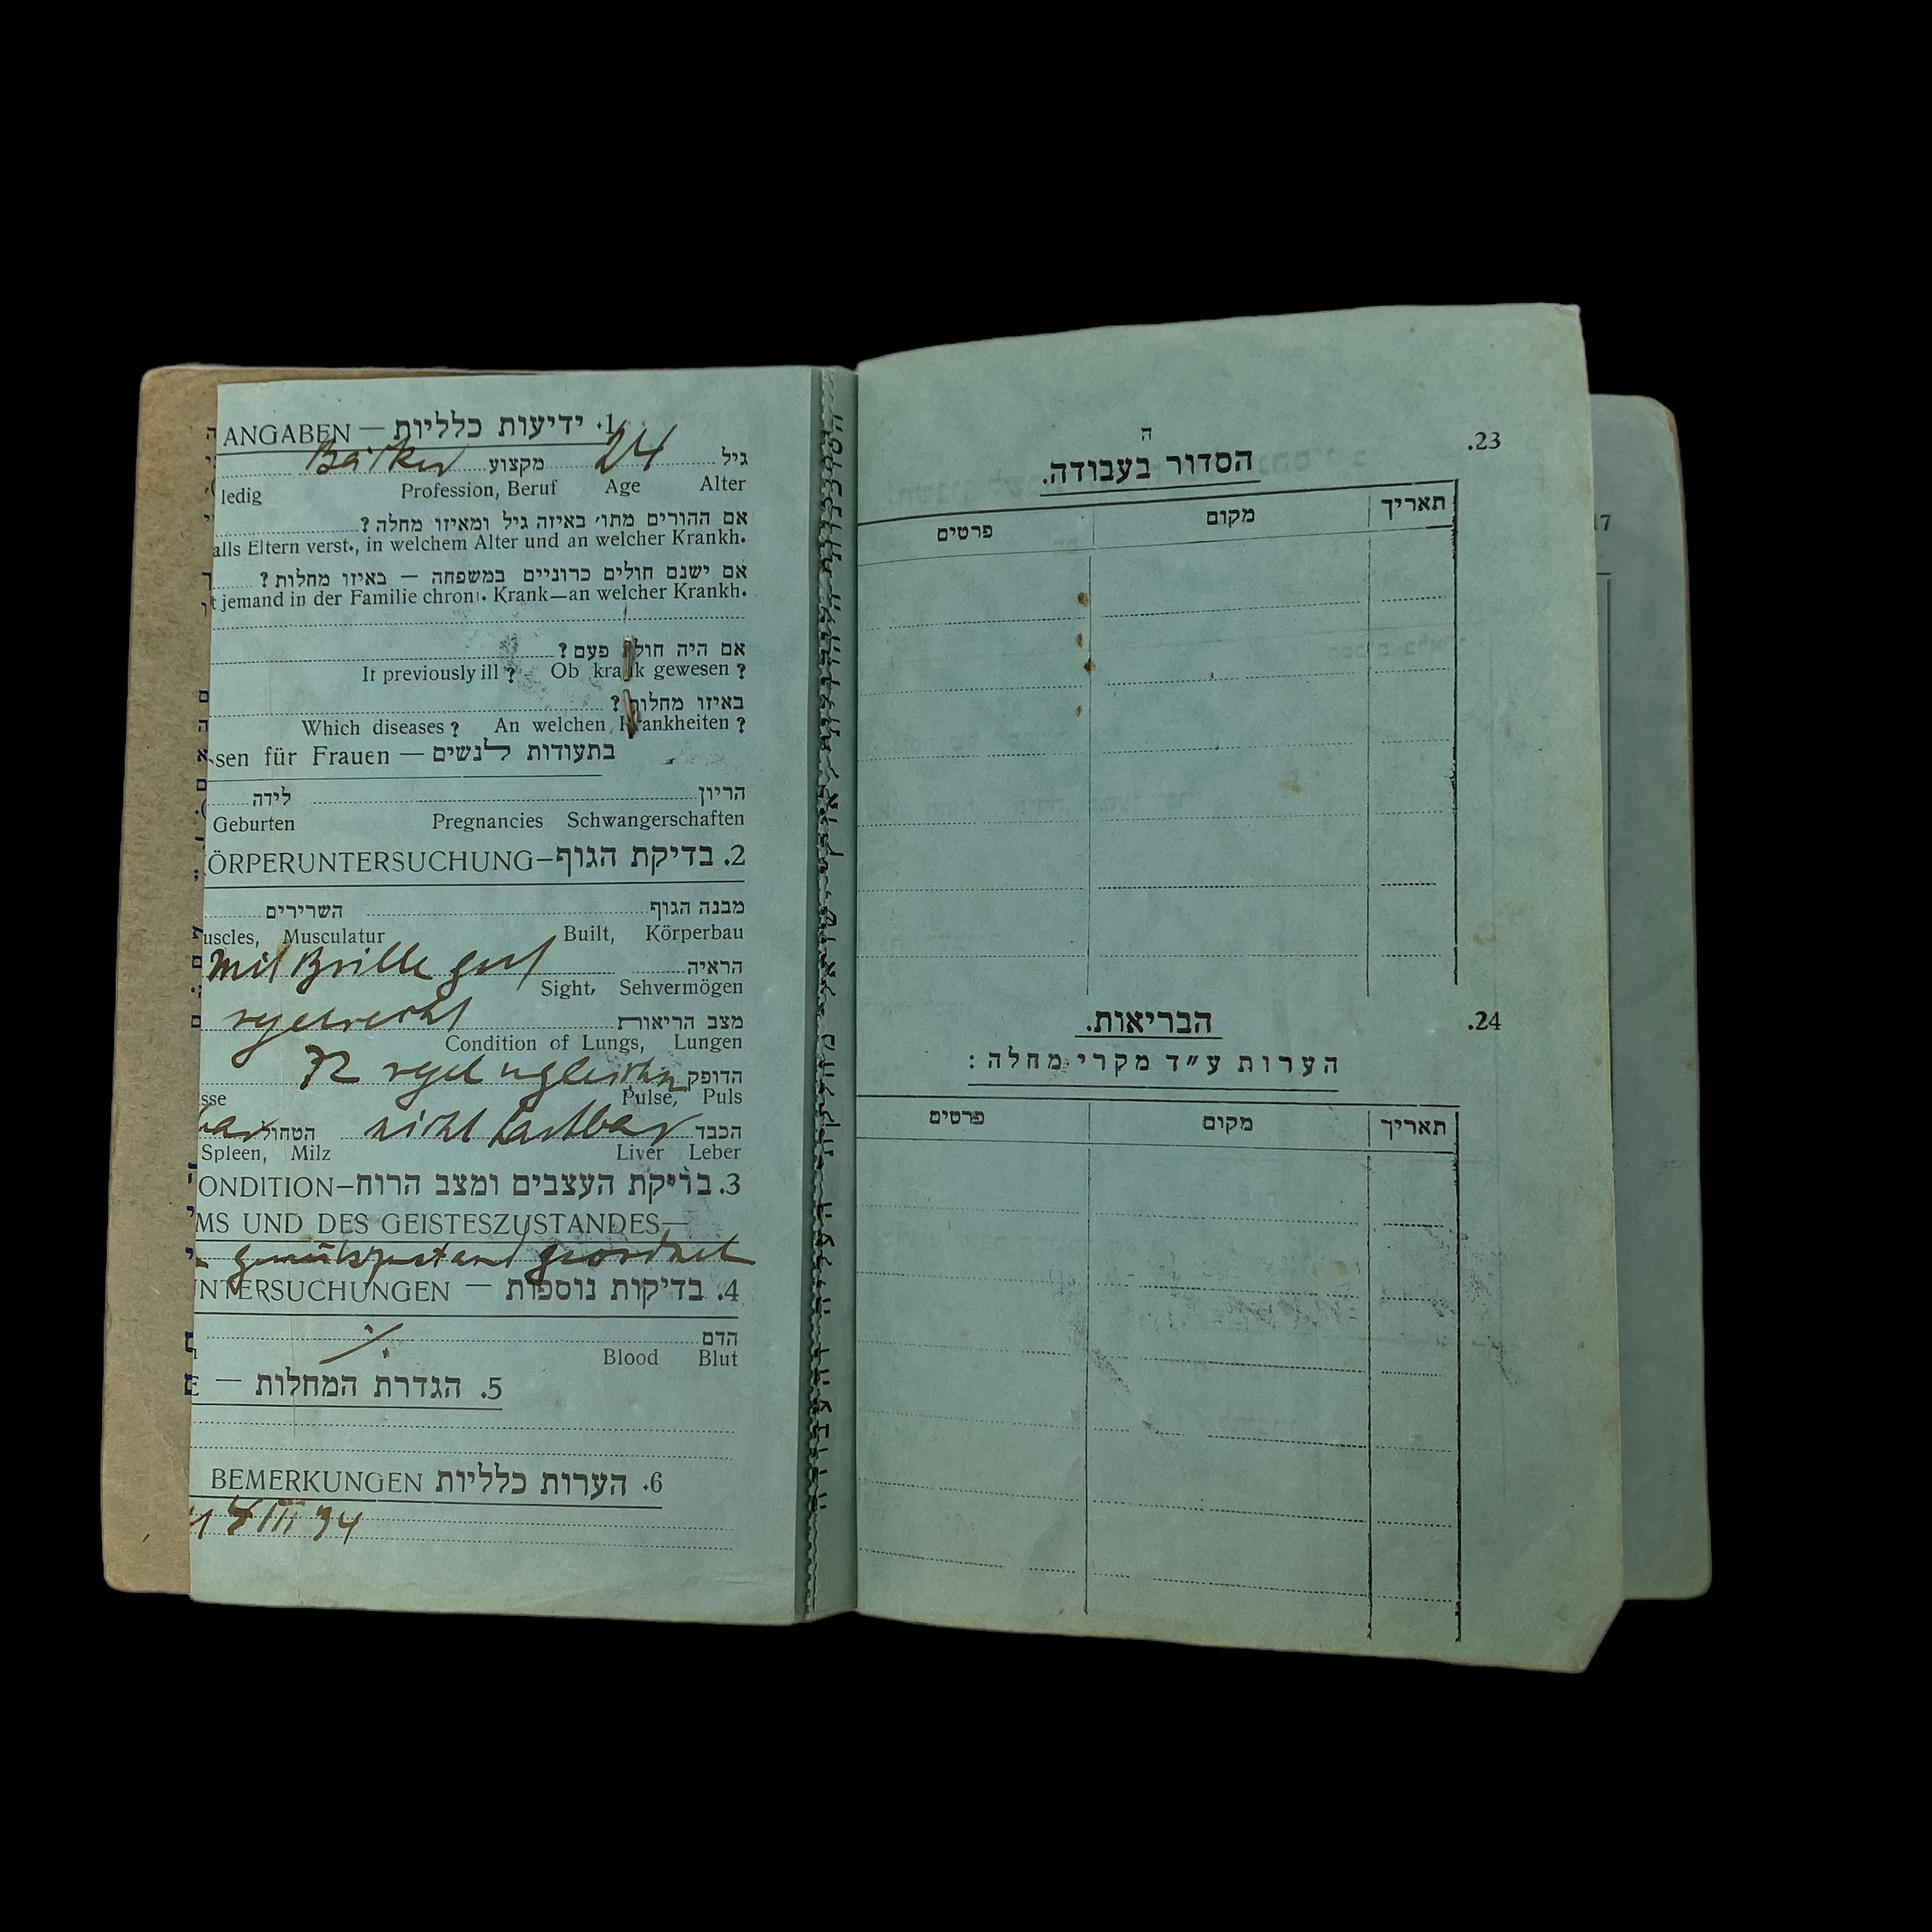 ANGABEN — ידיעות כלליות .1
גיל 24 מקצוע Bäcker
ledig Profession, Beruf Age Alter
אם ההורים מתו׳ באיזה גיל ומאיזו מחלה?
alls Eltern verst., in welchem Alter und an welcher Krankh.
אם ישנם חולים כרוניים במשפחה — באיזו מחלות?
t jemand in der Familie chron. Krank—an welcher Krankh.
אם היה חולה פעם?
It previously ill? Ob krank gewesen?
באיזו מחלות?
Which diseases? An welchen Krankheiten?
sen für Frauen — בתעודות לנשים
הריון לידה
Geburten Pregnancies Schwangerschaften
ÖRPERUNTERSUCHUNG—בדיקת הגוף .2
מבנה הגוף השרירים
uscles, Musculatur Built, Körperbau
הראיה Mit Brille gut
Sight, Sehvermögen
מצב הריאות regelrecht
Condition of Lungs, Lungen
הדופק 72 regel
sse Pulse, Puls
הכבד nicht tastbar הטחול bar
Spleen, Milz Liver Leber
ONDITION—בדיקת העצבים ומצב הרוח .3
MS UND DES GEISTESZUSTANDES—
gemütszustand geordnet
NTERSUCHUNGEN — בדיקות נוספות .4
הדם ./.
Blood Blut
E — הגדרת המחלות .5
BEMERKUNGEN הערות כלליות .6
III 34
ה
.23 הסדור בעבודה.
תאריך מקום פרטים
.24 הבריאות.
הערות ע״ד מקרי מחלה:
תאריך מקום פרטים
17